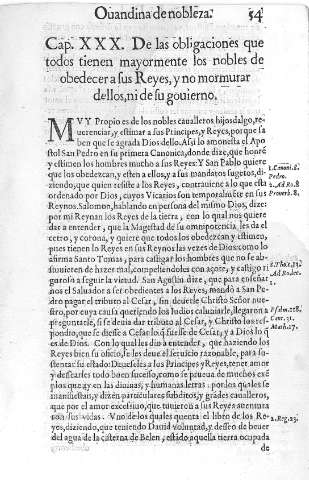 Ouandina de nobleza. 54
Cap. XXX. De las obligaciones que
todos tienen mayormente los nobles de
obedecer a sus Reyes, y no mormurar
dellos, ni de su gouierno.
MVY Propio es de los nobles caualleros hijosdalgo, re-
uerenciar, y estimar a sus Principes, y Reyes, por que sa
ben que se agrada Dios dello. Assi lo amonesta el Apo
stol San Pedro en su primera Canonica, donde dize, que honrē
y estimen los hombres mucho a sus Reyes: Y San Pablo quiere
que los obedezcan, y esten a ellos, y a sus mandatos sugetos, di-
ziendo, que quien resiste a los Reyes, contrauiene a lo que esta
ordenado por Dios, cuyos Vicarios son temporalmēte en sus
Reynos. Salomo, hablando en persona del mismo Dios, dize:
por mi Reynan los Reyes de la tierra, con lo qual nos quiere
dar a entender, que la Magestad de su omnipotencia, les da el
cetro, y corona, y quiere que todos los obedezcan y estimen,
pues tienen los Reyes en sus Reynos las vezes de Dios: como lo
afirma Santo Tomas, para castigar los hombres que no se ab-
stuuieren de hazer mal, compeliendolos con açote, y castigo ri
guroso a seguir la virtud. San Agustin dize, que para enseñar
nos el Saluador a ser obedientes a los Reyes, mandò a San Pe-
dro pagar el tributo al Cesar, sin deuerle Christo Señor nue-
stro, por cuya causa queriendo los Iudios calumniarle, llegaron a
preguntarle, si se deuia dar tributo al Cesar, y Christo les res-
pondio, que se diesse a Cesar lo q̄ fuesse de Cesar, y a Dios lo q̄
es de Dios. Con lo qual les dio à entender, que haziendo los
Reyes bien su oficio, se les deue el seruicio razonable, para su-
stentar su estado: Deueseles a los Principes y Reyes, tener amor
y dessearles todo buen sucesso, como se prueua de muchos exē
plos que ay en las diuinas, y humanas letras: por los quales se
manifiestan, y dizen particulares subditos, y grādes caualleros,
que por el amor excessiuo, que tuuieron a sus Reyes auentura
ron sus vidas. Vno de los quales quenta el libro de los Re-
yes, diziendo, que teniendo Dauid voluntad, y desseo de beuer
del agua de la cisterna de Belen, estādo aquella tierra ocupada
de
Pedro.
Ad Ro. 8
Prouerb. 8.
Math. 17.
2. Reg. 23.